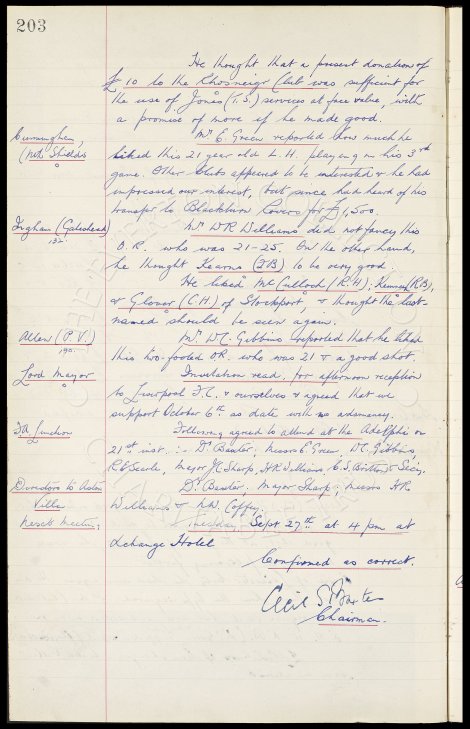 203
He thought that a present donation of
£10 to the Rhosneigr Club was sufficient for
the use of Jones (T.S.) services at face value, with
a promise of more if he made good.
Cunningham, Mr E. Green reported how much he
(Nth Shields) liked this 21 year old L.H. playing in his 3rd
game. Other Clubs appeared to be interested & he had
impressed our interest, but since had heard of his
transfer to Blackburn Rovers for £1,500.
Ingham (Gateshead) Mr W.R. Williams did not fancy this
132 O.R. who was 21-25. On the other hand,
he thought Kearns (I.B.) to be very good.
He liked McCulloch (R.H); (R.B),
& Glover (C.H) of Stockport, & thought the last-
named should be seen again.
Allen (P.V.) Mr W.C. Gibbins reported that he liked
190. this two-footed O.R. who was 21 & a good shot.
Lord Mayor Invitation read, for afternoon reception
to Liverpool F.C. & ourselves & agreed that we
support October 6th as date with no
FA Luncheon Following agreed to attend at the Adelphi on
21st inst. :- Dr Baxter, Messrs E. Green, W.C. Gibbins,
R.E. Searle, Major J.C. Sharp, W.R. Williams & Secy.
Directors to Aston Dr Baxter, Major Sharp, Messrs W.R.
Villa Williams & N.W. Coffey.
Next Meeting: Tuesday, Sept 27th at 4 pm at
Exchange Hotel
Confirmed as correct.
Cecil S. Baxter
Chairman.